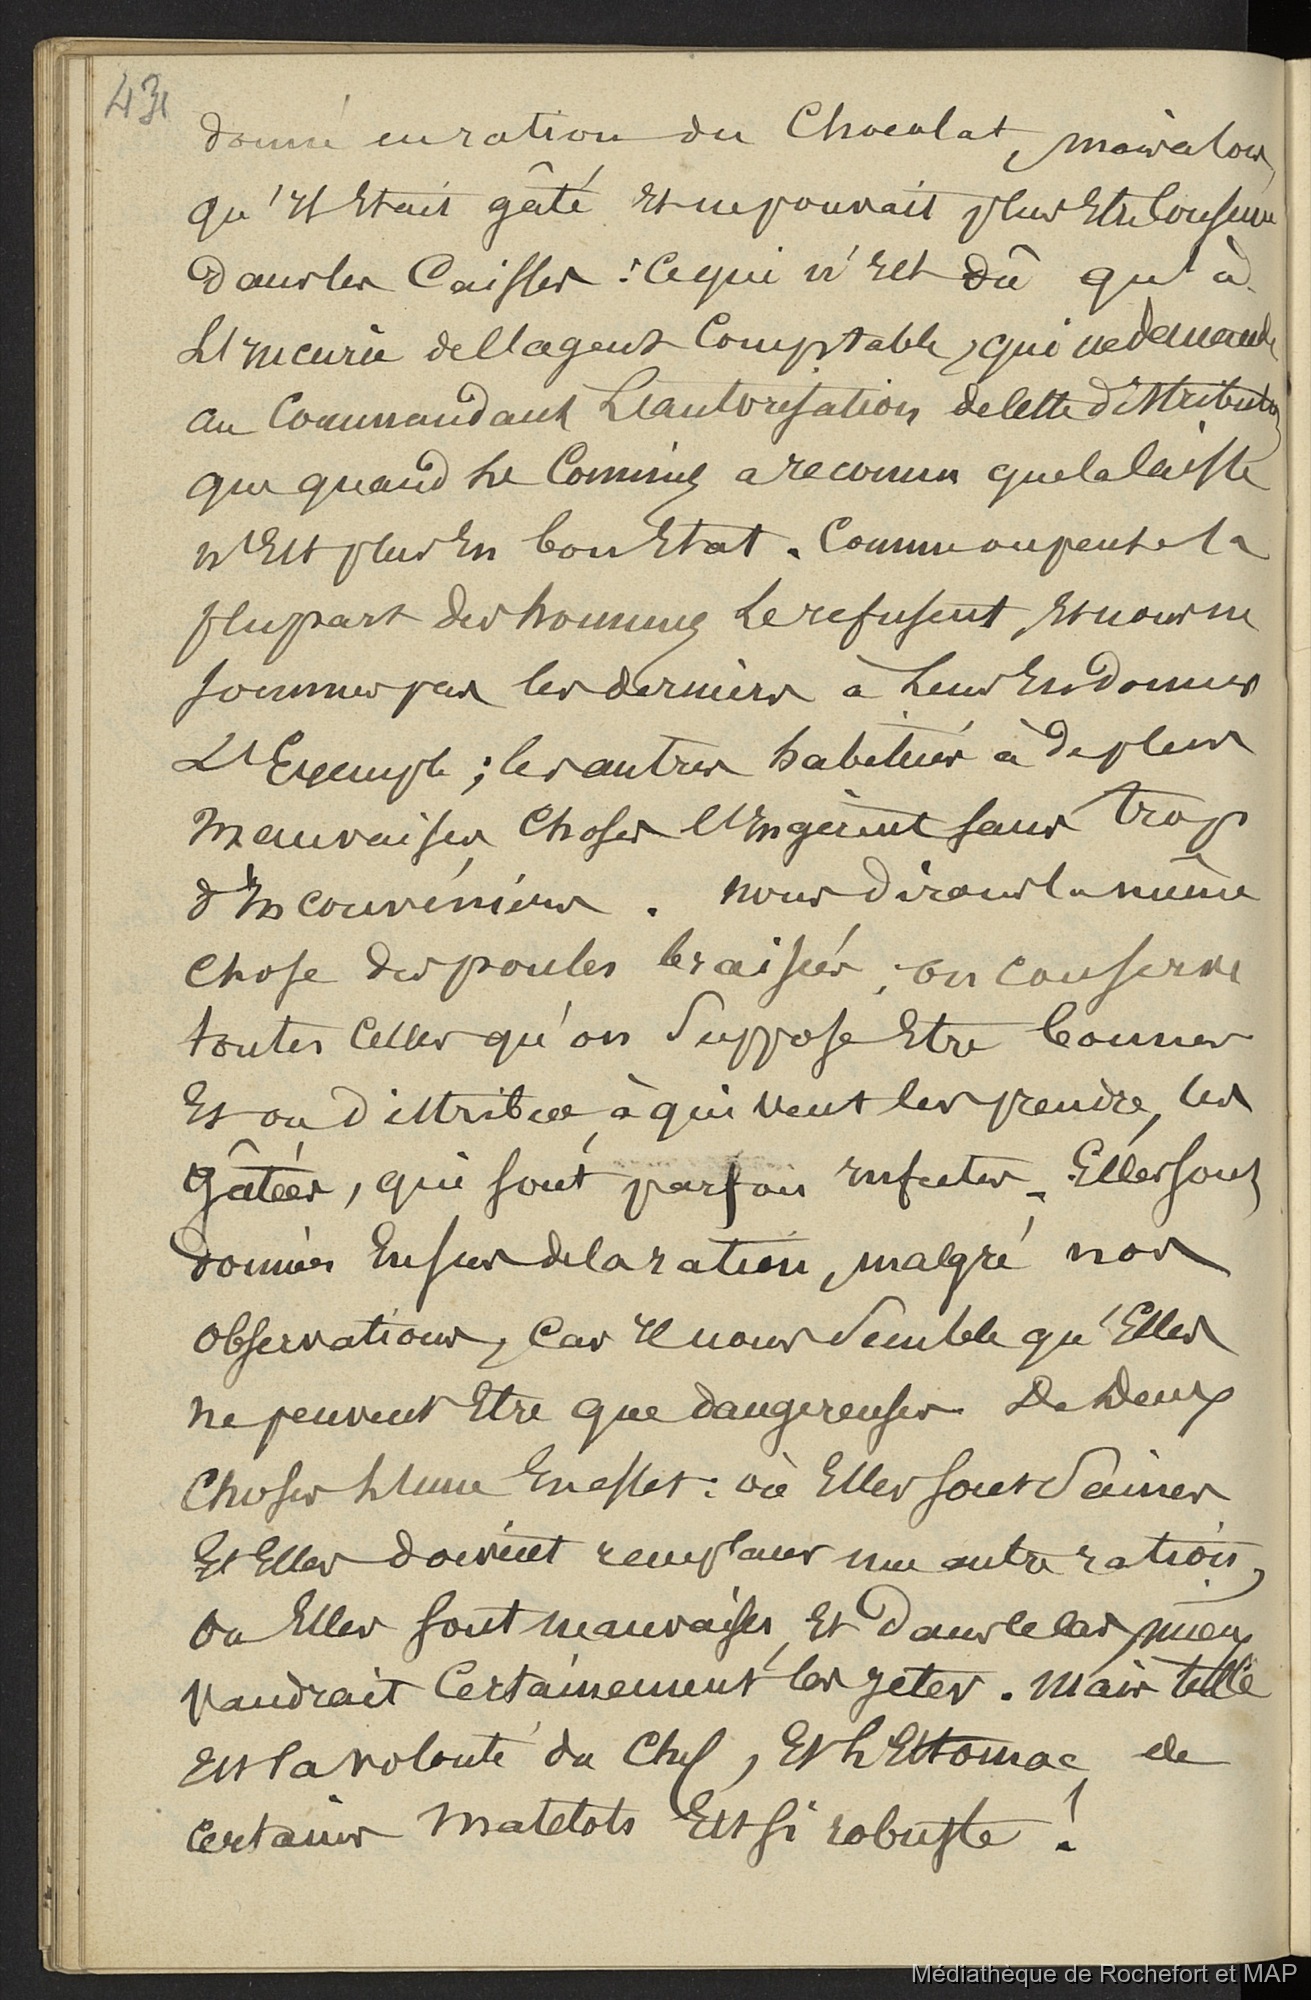 43
donné en ration du Chocolat, mais alors
qu'il était gâté et ne pouvait plus Etre Conservé
dans les Caisses : Ce qui n'est dû qu'à
L'incurie de l'agent Comptable, qui ne demande
au Commandant L'autorisation de cette distribution
que quand Le Commis a reconnu que la Caisse
n'Est plus En bon Etat. Comme on pense la
plupart des hommes Le refusent, Et nous ne
sommes pas les derniers à Leur En donner
L'Exemple ; les autres habitués à de plus
Mauvaises Choses l'Ingèrent sans trop
d'Inconvénients. nous dirons la même
Chose des poules braisées, on conserve
toutes Celles qu'on Suppose Etre bonnes
Et on distribue à qui veut les prendre, les
gâtées, qui sont parfois infectes. Elles sont
données En sus de la ration, malgré nos
Observations, Car Il nous Semble qu'Elles
ne peuvent Etre que dangereuses. De Deux
Choses L'une En effet : où Elles sont Saines
Et Elles doivent remplacer une autre ration,
Ou Elles sont mauvaises, Et dans ce Cas, mieux
vaudrait Certainement les jeter. Mais telle
Est la volonté du Chef, Et L'Estomac de
certains Matelots Est si robuste !
Médiathèque de Rochefort et MAP